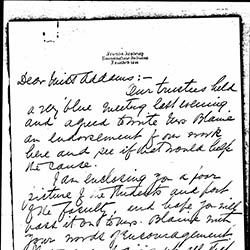 Dear Miss Addams:—
Our trustees held
a very blue meeting last evening
and agreed to write Mrs. Blaine
an endorsement of our work
here and see if that would help
the cause.
I am enclosing you a poor
picture of the students and part
of the faculty and hope you will
hand it on to Mrs. Blaine with
your words of encouragement